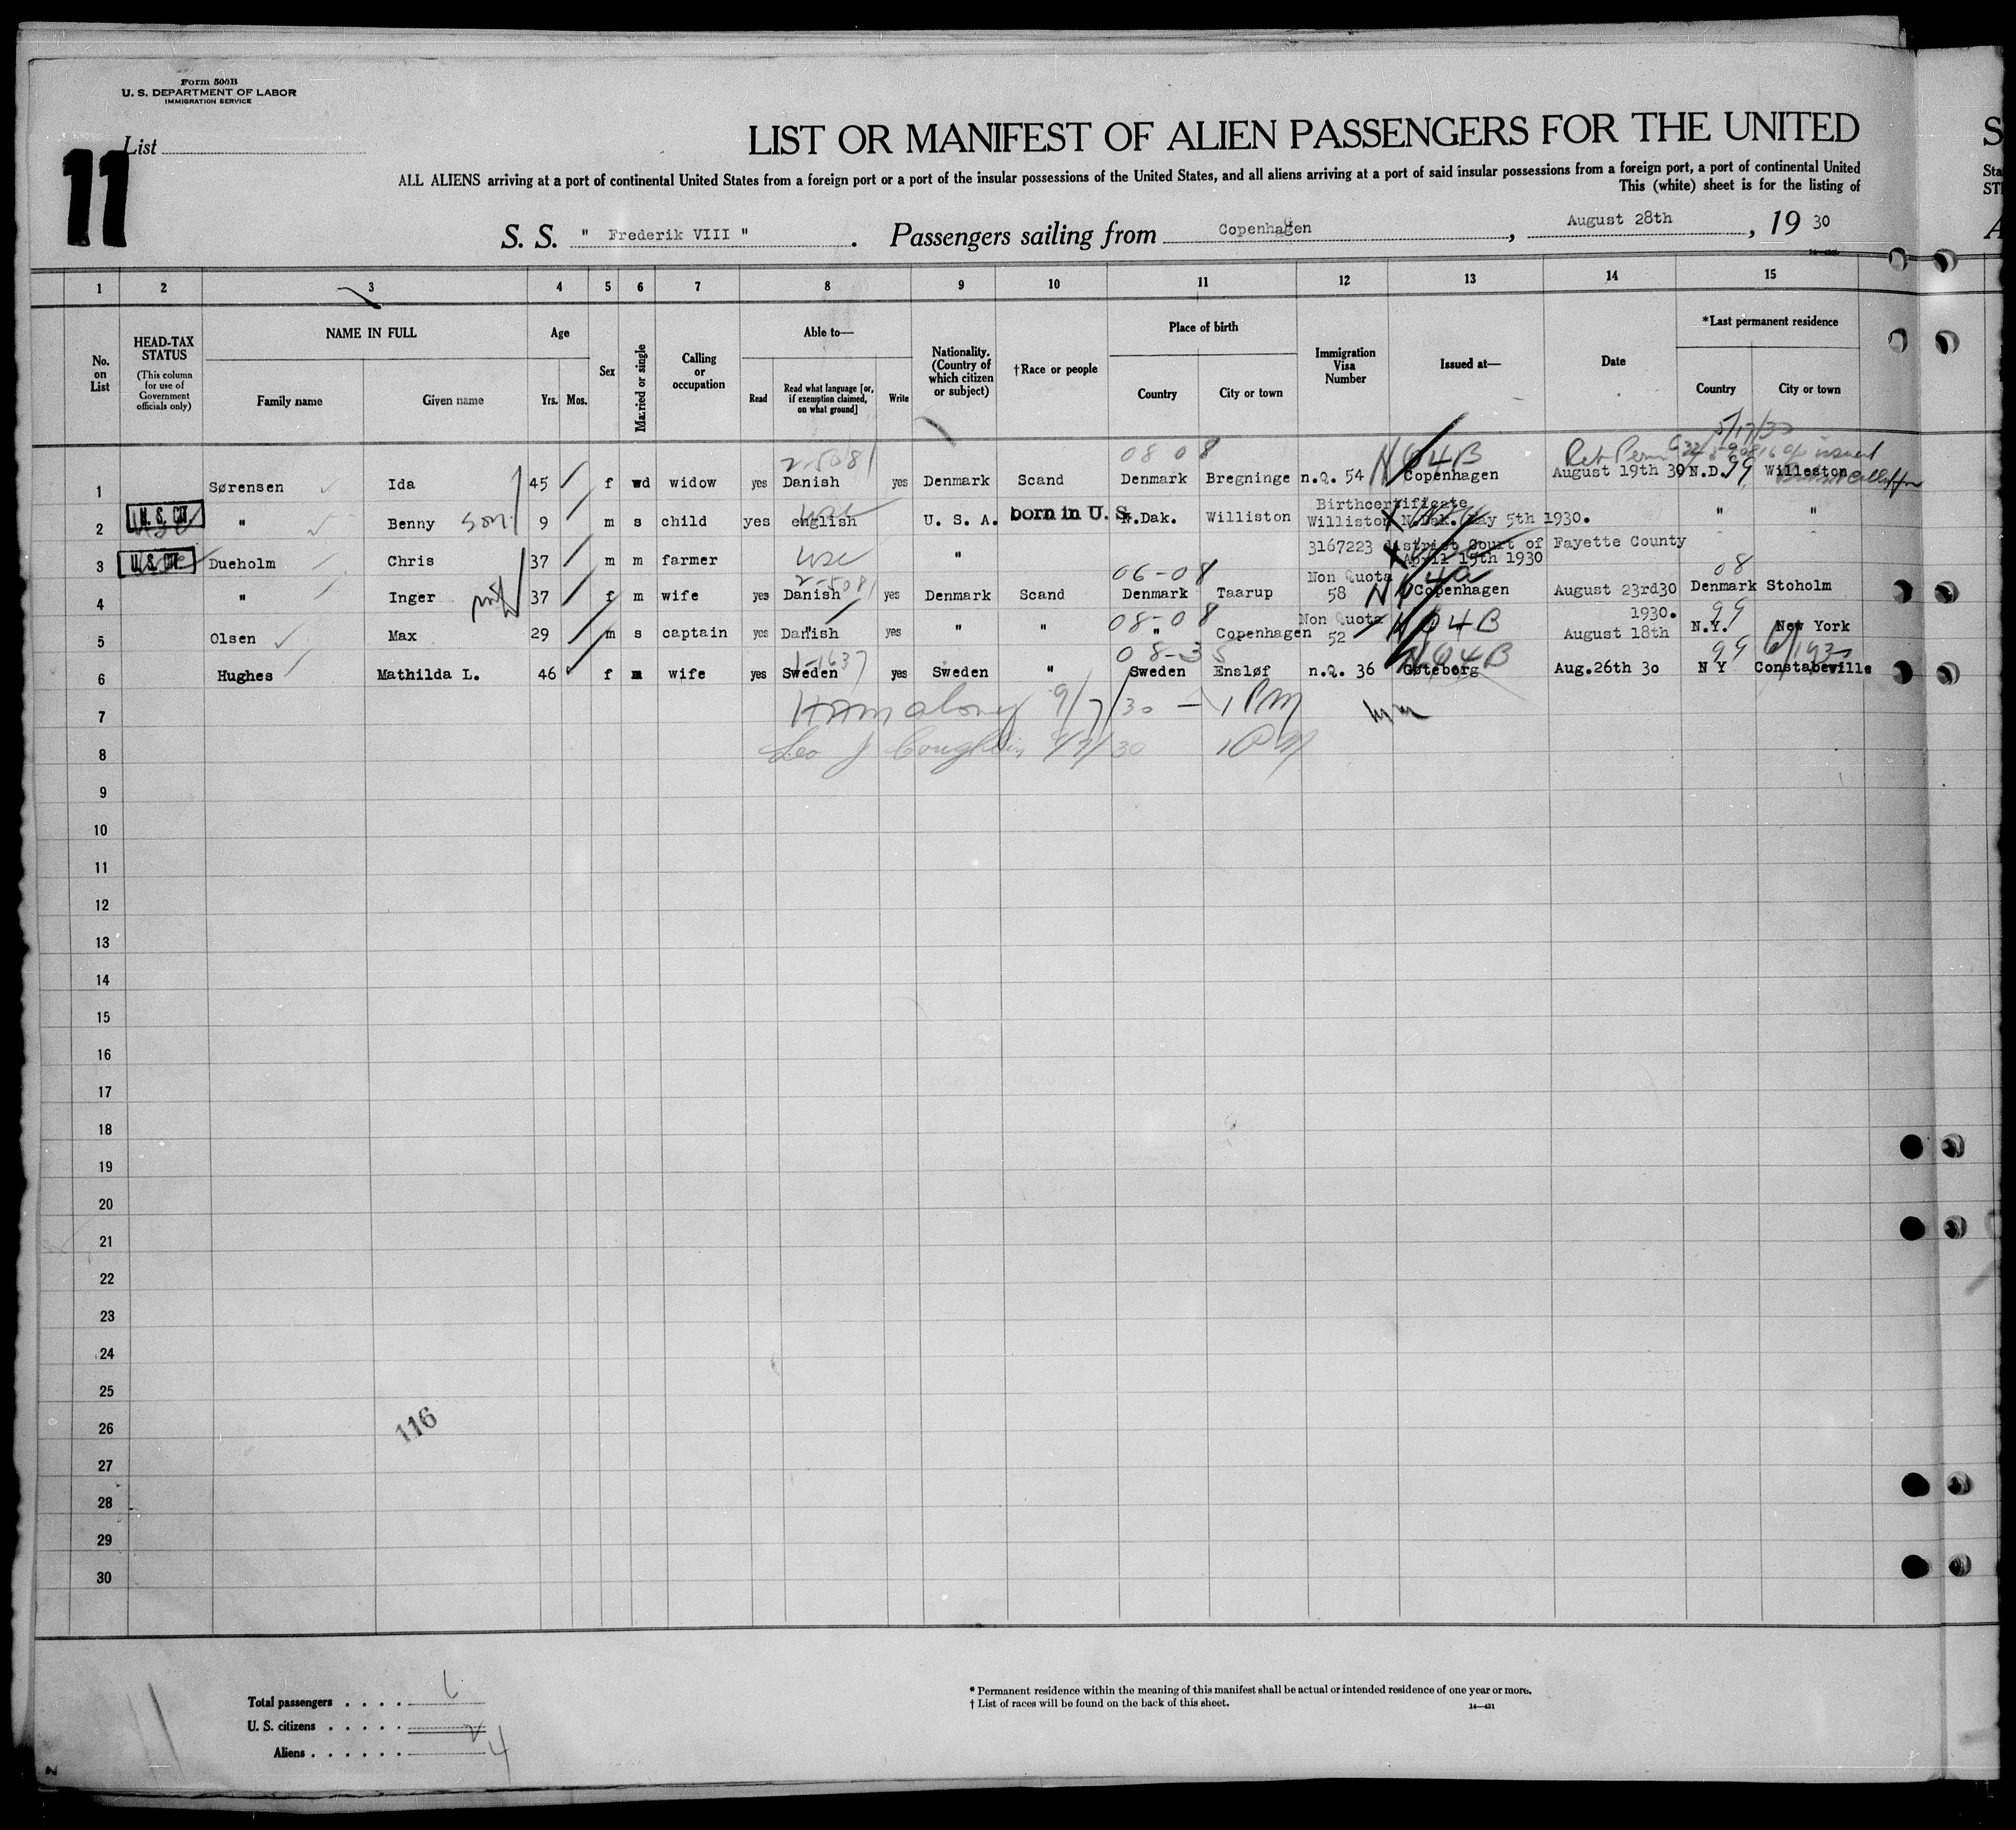 Form 500B
U. S. DEPARTMENT OF LABOR
IMMIGRATION SERVICE
List
11
LIST OR MANIFEST OF ALIEN PASSENGERS FOR THE UNITED
ALL ALIENS arriving at a port of continental United States from a foreign port or a port of the insular possessions of the United States, and all aliens arriving at a port of said insular possessions from a foreign port, a port of continental United
This (white) sheet is for the listing of
S. S. " Frederik VIII " . Passengers sailing from Copenhagen , August 28th , 19 30
1 2 3 4 5 6 7 8 9 10 11 12 13 14 15
HEAD-TAX STATUS
(This column for use of Government officials only)
No. on List
NAME IN FULL
Family name Given name
Age
Yrs. Mos.
Sex
Married or single
Calling or occupation
Able to—
Read
Read what language [or, if exemption claimed, on what ground]
Write
Nationality. (Country of which citizen or subject)
†Race or people
Place of birth
Country City or town
Immigration Visa Number
Issued at—
Date
*Last permanent residence
Country City or town
5/17/30
2-5081 08 08 N 04B Ret Perm
1 Sørensen Ida 45 f wd widow yes Danish yes Denmark Scand Denmark Bregninge n.Q. 54 Copenhagen August 19th 30 N.D. 99 Williston
Birthcertificate
2 U. S. CIT. " Benny son 9 m s child yes english U. S. A. born in U. S. N.Dak. Williston Williston N.Dak. May 5th 1930. " "
3167223 district Court of Fayette County
3 U. S. CIT. Dueholm Chris 37 m m farmer usc " April 15th 1930
2-5081 06-08 Non Quota N 4a 08
4 " Inger wife 37 f m wife yes Danish yes Denmark Scand Denmark Taarup 58 Copenhagen August 23rd30 Denmark Stoholm
08-08 Non Quota 04B 1930. 99
5 Olsen Max 29 m s captain yes Danish yes " " " Copenhagen 52 August 18th N.Y. New York
1-1637 08-35 N04B 99 6/1930
6 Hughes Mathilda L. 46 f m wife yes Sweden yes Sweden " Sweden Ensløf n.Q. 36 Gøteborg Aug.26th 30 N Y Constabeville
7 9/7/30 — 1 PM
8 Leo J Coughlin 9/7/30 1PM
9
10
11
12
13
14
15
16
17
18
19
20
21
22
23
24
25
26
27
28
29
30
116
Total passengers . . . . 6
U. S. citizens . . . . . 2
Aliens . . . . . . 4
* Permanent residence within the meaning of this manifest shall be actual or intended residence of one year or more.
† List of races will be found on the back of this sheet.
14—431